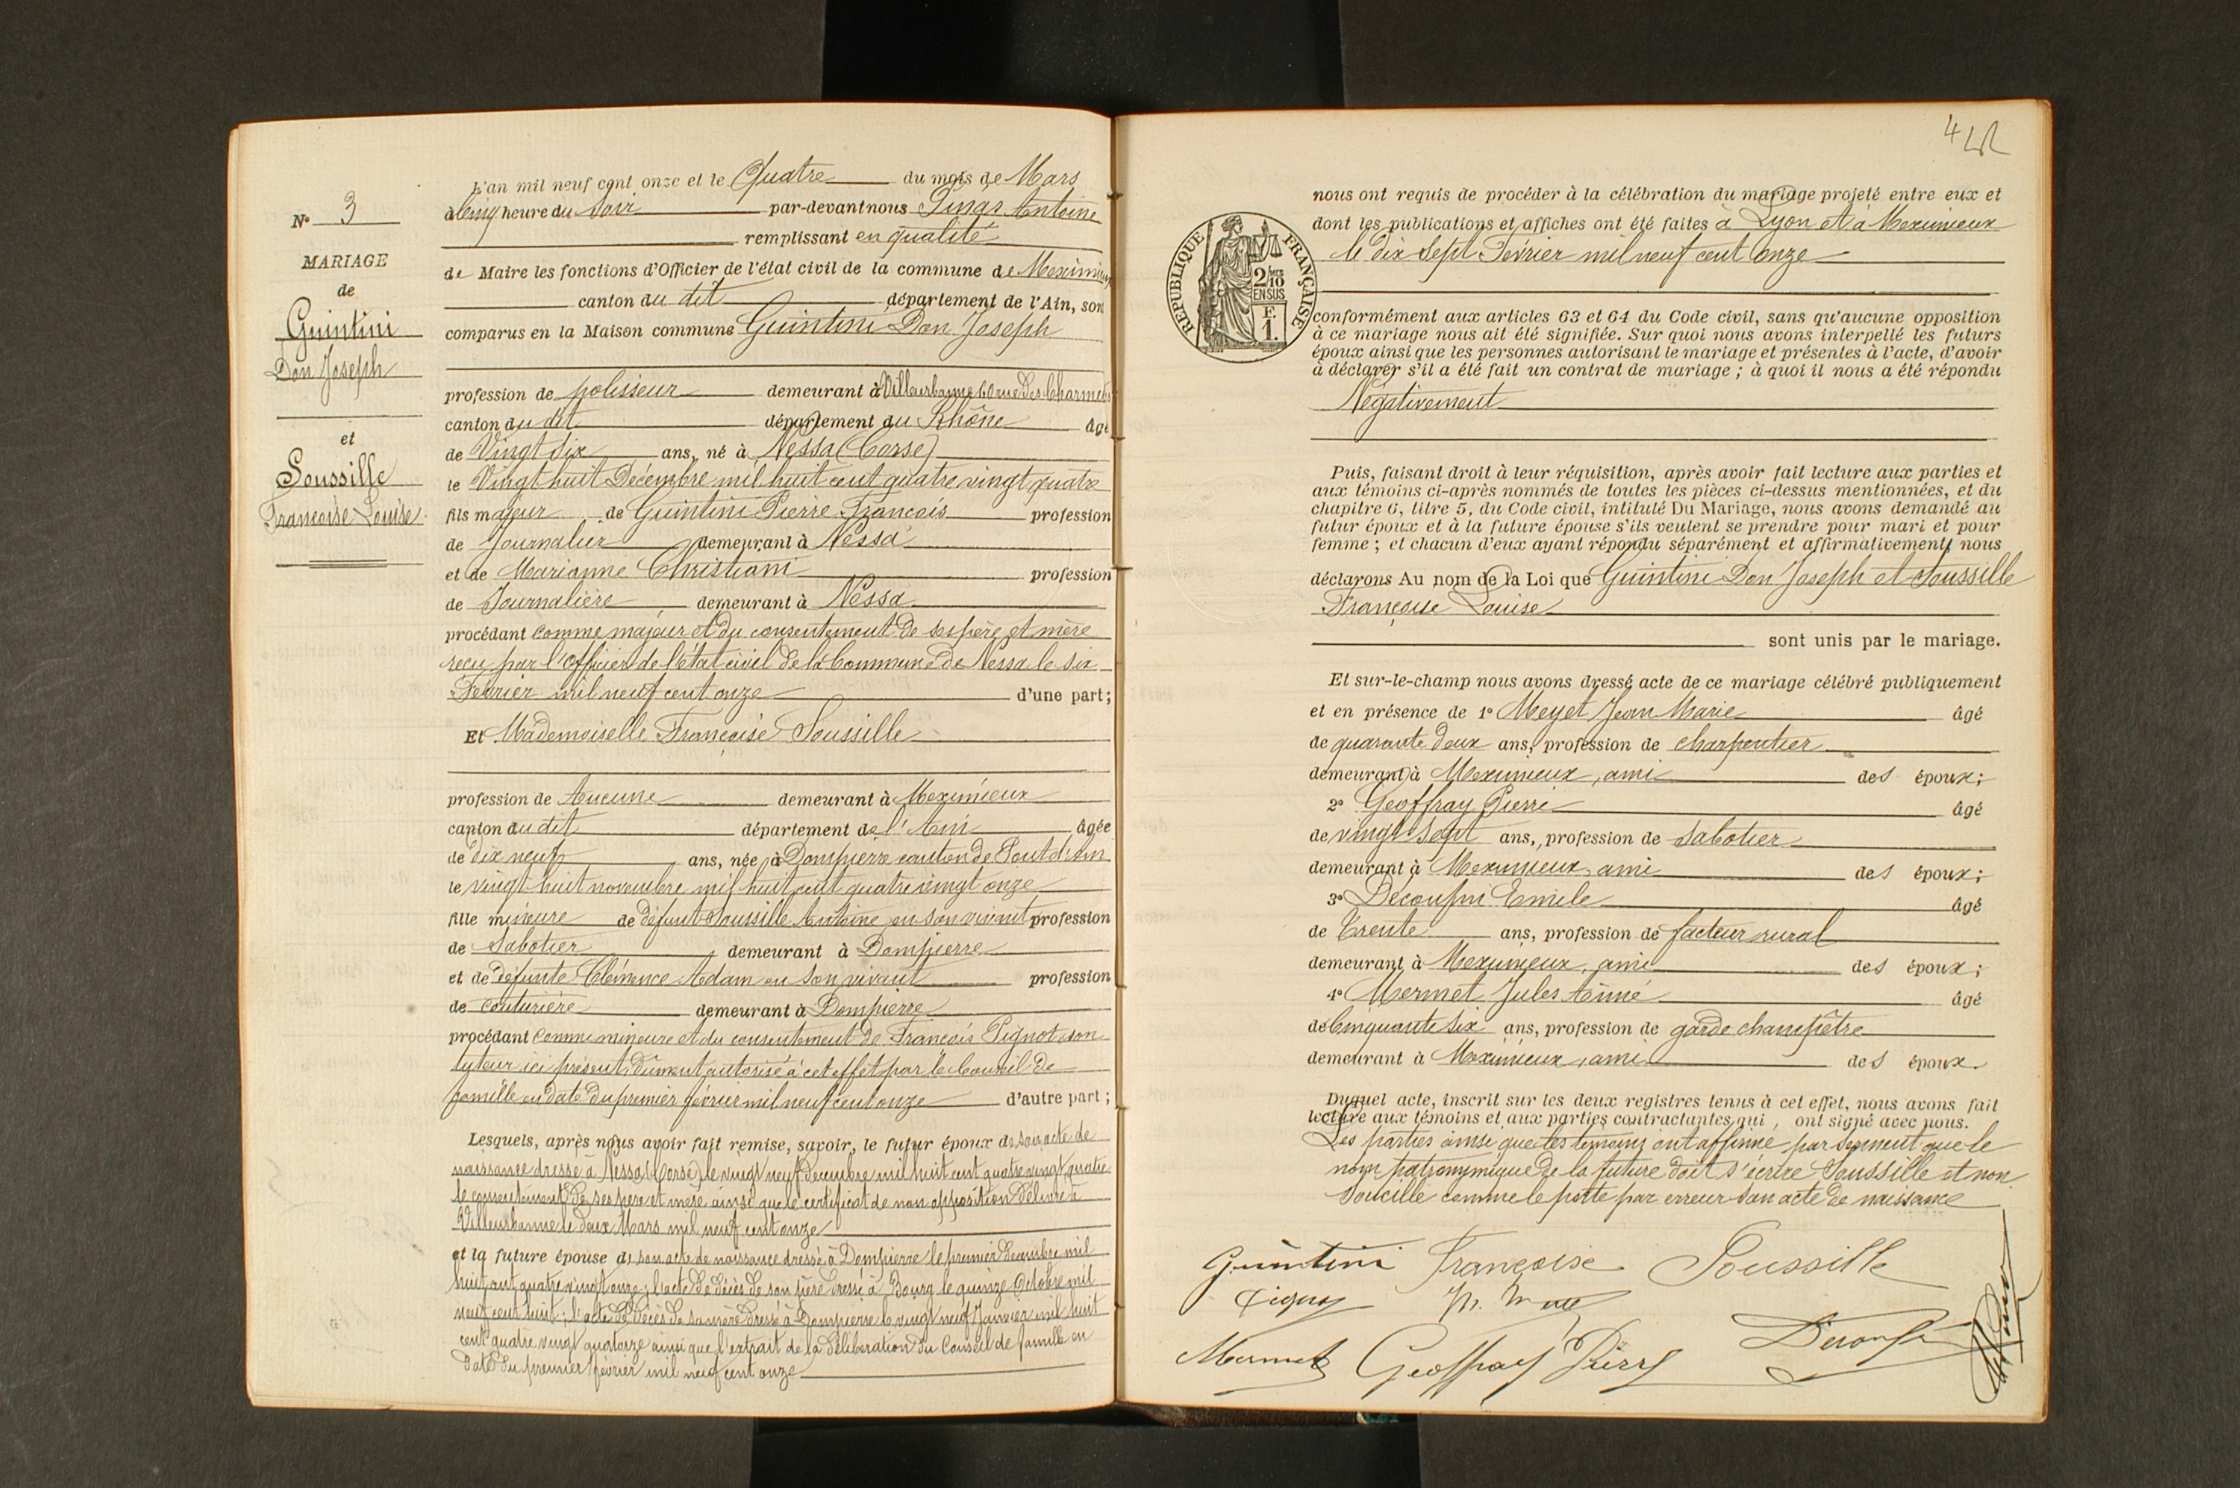 N° 3
MARIAGE
de
Guintini
Don Joseph
et
Soussille
Françoise Louise
L'an mil neuf cent onze et le Quatre du mois de Mars
à cinq heure du soir par-devant nous Antoine
remplissant en qualité
de Maire les fonctions d'Officier de l'état civil de la commune de Meximieux
canton du dit département de l'Ain, sont
comparus en la Maison commune Guintini Don Joseph
profession de polisseur demeurant à Villeurbanne 60 rue des Charmettes
canton du dit département du Rhône âgé
de Vingt six ans, né à Nessa (Corse)
le Vingt huit Décembre mil huit cent quatre vingt quatre
fils majeur de Guintini Pierre François profession
de Journalier demeurant à Nessa
et de Marianne Christiani profession
de Journalière demeurant à Nessa
procédant comme majeur et du consentement de ses père et mère
reçu par l'Officier de l'état civil de la Commune de Nessa le six
Février mil neuf cent onze d'une part;
Et Mademoiselle Françoise Soussille
profession de Aucune demeurant à Meximieux
canton du dit département de l'Ain âgée
de dix neuf ans, née à Dompierre canton de Pont d'Ain
le vingt huit novembre mil huit cent quatre vingt onze
fille mineure de défunt Soussille Antoine en son vivant profession
de Sabotier demeurant à Dompierre
et de défunte Clémence Adam en son vivant profession
de couturière demeurant à Dompierre
procédant comme mineure et du consentement de François Pignot son
tuteur ici présent, dûment autorisé à cet effet par le Conseil de
famille en date du premier février mil neuf cent onze d'autre part;
Lesquels, après nous avoir fait remise, savoir, le futur époux de son acte de
naissance dressé à Nessa (Corse) le vingt neuf Décembre mil huit cent quatre vingt quatre
le consentement de ses père et mère ainsi que le certificat de non opposition délivré à
Villeurbanne le deux Mars mil neuf cent onze
et la future épouse de son acte de naissance dressé à Dompierre le premier Décembre mil
huit cent quatre vingt onze, l'acte de décès de son père dressé à Bourg le quinze Octobre mil
neuf cent huit; l'acte de décès de sa mère dressé à Dompierre le vingt neuf Janvier mil huit
cent quatre vingt quatorze ainsi que l'extrait de la délibération du Conseil de famille en
date du premier février mil neuf cent onze
4
nous ont requis de procéder à la célébration du mariage projeté entre eux et
dont les publications et affiches ont été faites à Lyon et à Meximieux
le dix sept Février mil neuf cent onze
RÉPUBLIQUE FRANÇAISE
2/10
EN SUS
E
1.
conformément aux articles 63 et 64 du Code civil, sans qu'aucune opposition
à ce mariage nous ait été signifiée. Sur quoi nous avons interpellé les futurs
époux ainsi que les personnes autorisant le mariage et présentes à l'acte, d'avoir
à déclarer s'il a été fait un contrat de mariage; à quoi il nous a été répondu
Négativement
Puis, faisant droit à leur réquisition, après avoir fait lecture aux parties et
aux témoins ci-après nommés de toutes les pièces ci-dessus mentionnées, et du
chapitre 6, titre 5, du Code civil, intitulé Du Mariage, nous avons demandé au
futur époux et à la future épouse s'ils veulent se prendre pour mari et pour
femme; et chacun d'eux ayant répondu séparément et affirmativement, nous
déclarons Au nom de la Loi que Guintini Don Joseph et Soussille
Françoise Louise
sont unis par le mariage.
Et sur-le-champ nous avons dressé acte de ce mariage célébré publiquement
et en présence de 1° Meyet Jean Marie âgé
de quarante deux ans, profession de charpentier
demeurant à Meximieux, ami des époux;
2° Geoffray Pierre âgé
de vingt sept ans, profession de sabotier
demeurant à Meximieux, ami des époux;
3° Emile âgé
de Trente ans, profession de facteur rural
demeurant à Meximieux, ami des époux;
4° Mermet Jules Aimé âgé
de Cinquante six ans, profession de garde champêtre
demeurant à Meximieux, ami des époux.
Duquel acte, inscrit sur les deux registres tenus à cet effet, nous avons fait
lecture aux témoins et aux parties contractantes qui, ont signé avec nous.
Les parties ainsi que les témoins ont affirmé par serment que le
nom patronymique de la future doit s'écrire Soussille et non
Soucille comme le porte par erreur son acte de naissance
Guintini Françoise Soussille
Mermet Geoffray Pierre